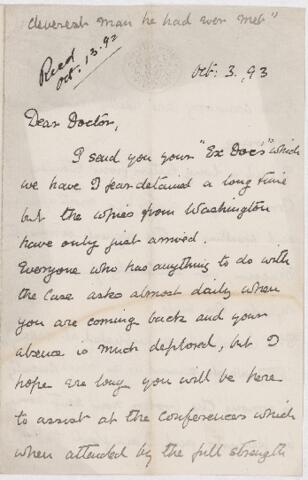 cleverest man he had ever met"
Recd
Oct. 13. 92
Oct: 3. 93
Dear Doctor,
I send you your "Ex Docs" which
we have I fear detained a long time
but the copies from Washington
have only just arrived.
Everyone who has anything to do with
the Case asks almost daily when
you are coming back and your
absence is much deplored, but I
hope ere long you will be here
to assist at the conferences which
when attended by the full strength